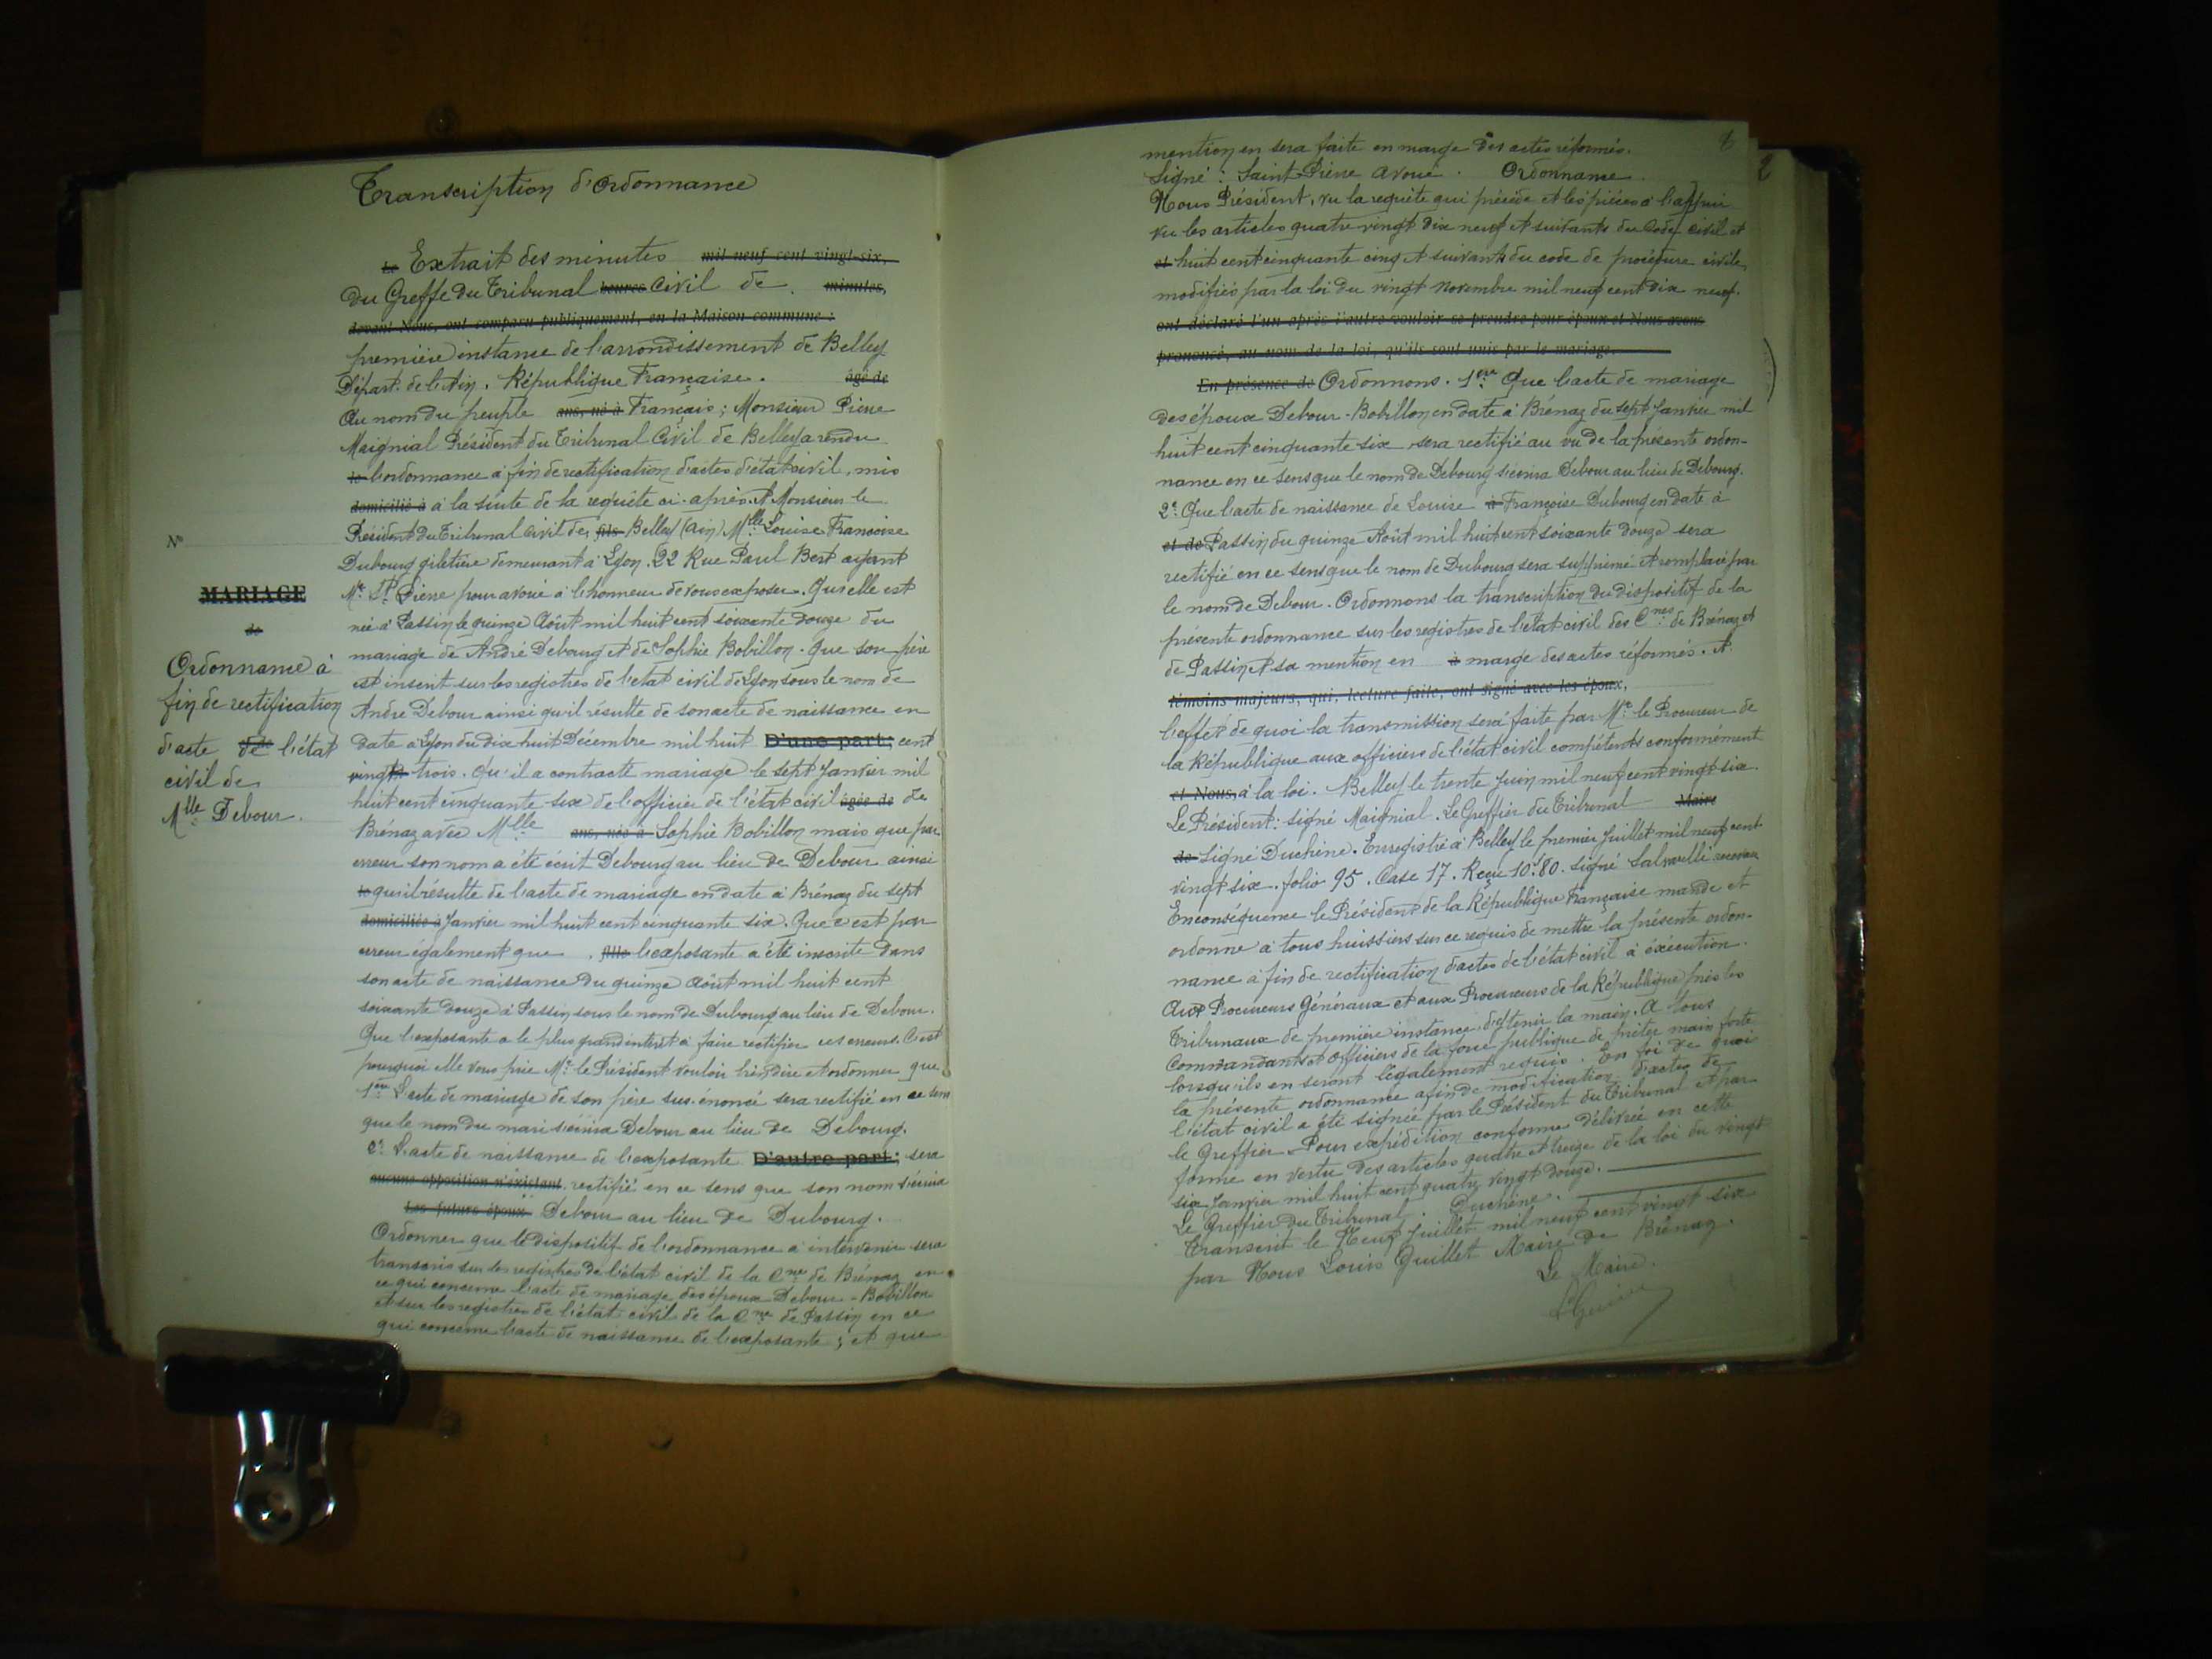 Transcription d'Ordonnance
Le Extrait des minutes mil neuf cent vingt-six,
du Greffe du Tribunal heures Civil de minutes,
devant Nous, ont comparu publiquement, en la Maison commune :
première instance de l'arrondissement de Belley
Départ. de l'Ain. République Française. âgé de
Au nom du peuple ans, né à Français ; Monsieur Pierre
Maignial Président du Tribunal Civil de Belley a rendu
le l'ordonnance à fin de rectification d'actes d'état civil, mis
domicilié à à la suite de la requête ci-après. A Monsieur le
Président du Tribunal Civil de fils Belley (Ain) Mlle Louise Françoise
Dubourg giletière demeurant à Lyon. 22 Rue Paul Bert ayant
Me St Pierre pour avoué à l'honneur de vous exposer. Qu'elle est
née à Passin le quinze Août mil huit cent soixante douze du
mariage de André Debourg et de Sophie Bobillon. Que son père
est inscrit sur les registres de l'état civil de Lyon sous le nom de
André Debour ainsi qu'il résulte de son acte de naissance en
date à Lyon du dix huit Décembre mil huit D'une part ; cent
vingt trois. Qu'il a contracté mariage le sept Janvier mil
huit cent cinquante-six de l'officier de l'état civil âgée de de
Brénaz avec Mlle ans, née à Sophie Bobillon mais que par
erreur son nom a été écrit Debourg au lieu de Debour ainsi
le qu'il résulte de l'acte de mariage en date à Brénaz du sept
domiciliée à Janvier mil huit cent cinquante six. Que c'est par
erreur également que fille l'exposante a été inscrite dans
son acte de naissance du quinze Août mil huit cent
soixante douze à Passin sous le nom de Dubourg au lieu de Debour.
Que l'exposante a le plus grand intérêt à faire rectifier ces erreurs. C'est
pourquoi elle vous prie Mr le Président vouloir bien dire et ordonner que
1er L'acte de mariage de son père sus-énoncé sera rectifié en ce sens
que le nom du mari s'écrira Debour au lieu de Debourg.
2° L'acte de naissance de l'exposante D'autre part ; sera
aucune opposition n'existant rectifié en ce sens que son nom s'écrira
Les futurs époux Debour au lieu de Dubourg.
Ordonner que le dispositif de l'ordonnance à intervenir sera
transcris sur les registres de l'état civil de la Cne de Brénaz en
ce qui concerne l'acte de mariage des époux Debour-Bobillon
et sur les registres de l'état civil de la Cne de Passin en ce
qui concerne l'acte de naissance de l'exposante ; et que
N°
MARIAGE
de
Ordonnance à
fin de rectification
d'acte de l'état
civil de
Mlle Debour.
2
mention en sera faite en marge des actes réformés.
Signé : Saint-Pierre avoué. Ordonnance.
Nous Président, vu la requête qui précède et les pièces à l'appui
vu les articles quatre vingt dix neuf et suivants du Code civil et
et huit cent cinquante cinq et suivants du code de procédure civile,
modifiés par la loi du vingt Novembre mil neuf cent dix neuf.
ont déclaré l'un après l'autre vouloir se prendre pour époux et Nous avons
prononcé, au nom de la loi, qu'ils sont unis par le mariage.
En présence de Ordonnons. 1er Que l'acte de mariage
des époux Debour-Bobillon en date à Brénaz du sept Janvier mil
huit cent cinquante-six sera rectifié au vu de la présente ordon-
nance en ce sens que le nom de Debourg s'écrira Debour au lieu de Debourg.
2° Que l'acte de naissance de Louise à Françoise Dubourg en date à
et de Passin du quinze Août mil huit cent soixante douze sera
rectifié en ce sens que le nom de Dubourg sera supprimé et remplacé par
le nom de Debour. Ordonnons la transcription du dispositif de la
présente ordonnance sur les registres de l'état civil des Cnes de Brénaz et
de Passin et sa mention en à marge des actes réformés. A
témoins majeurs, qui, lecture faite, ont signé avec les époux,
l'effet de quoi la transmission sera faite par Mr le Procureur de
la République aux officiers de l'état civil compétents conformément
et Nous, à la loi. Belley le trente Juin mil neuf cent vingt-six.
Le Président : signé Maignial. Le Greffier du Tribunal Maire
de Signé Duchêne. Enregistré à Belley le premier Juillet mil neuf cent
vingt six. folio 95. Case 17. Reçu 10f.80. signé receveur
En conséquence le Président de la République Française mande et
ordonne à tous huissiers sur ce requis de mettre la présente ordon-
nance à fin de rectification d'actes de l'état civil à exécution.
Aux Procureurs Généraux et aux Procureurs de la République près les
Tribunaux de première instance, d'y tenir la main. A tous
Commandants et officiers de la force publique de prêter main forte
lorsqu'ils en seront légalement requis. En foi de quoi
la présente ordonnance afin de modification d'actes de
l'état civil a été signée par le Président du Tribunal et par
le Greffier. Pour expédition conforme délivrée en cette
forme en vertu des articles quatre et treize de la loi du vingt
six Janvier mil huit cent quatre vingt douze.
Le Greffier du Tribunal. Duchêne.
Transcrit le Neuf Juillet mil neuf cent vingt six
par Nous Louis Guillet Maire de Brénaz.
Le Maire.